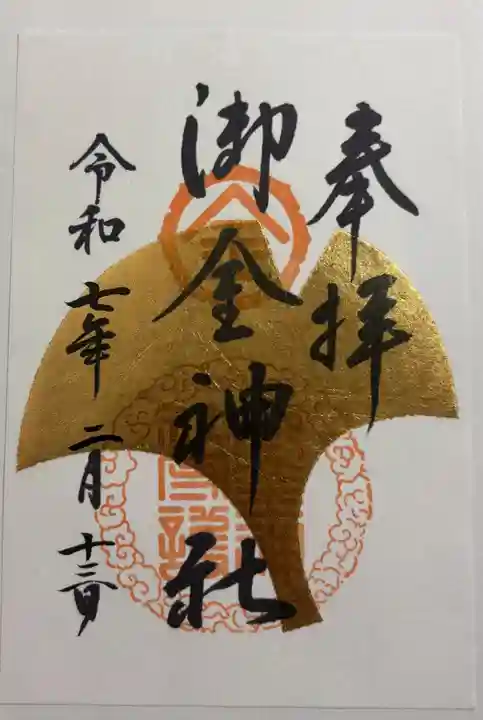 奉拝
御金神社
令和七年二月十三日